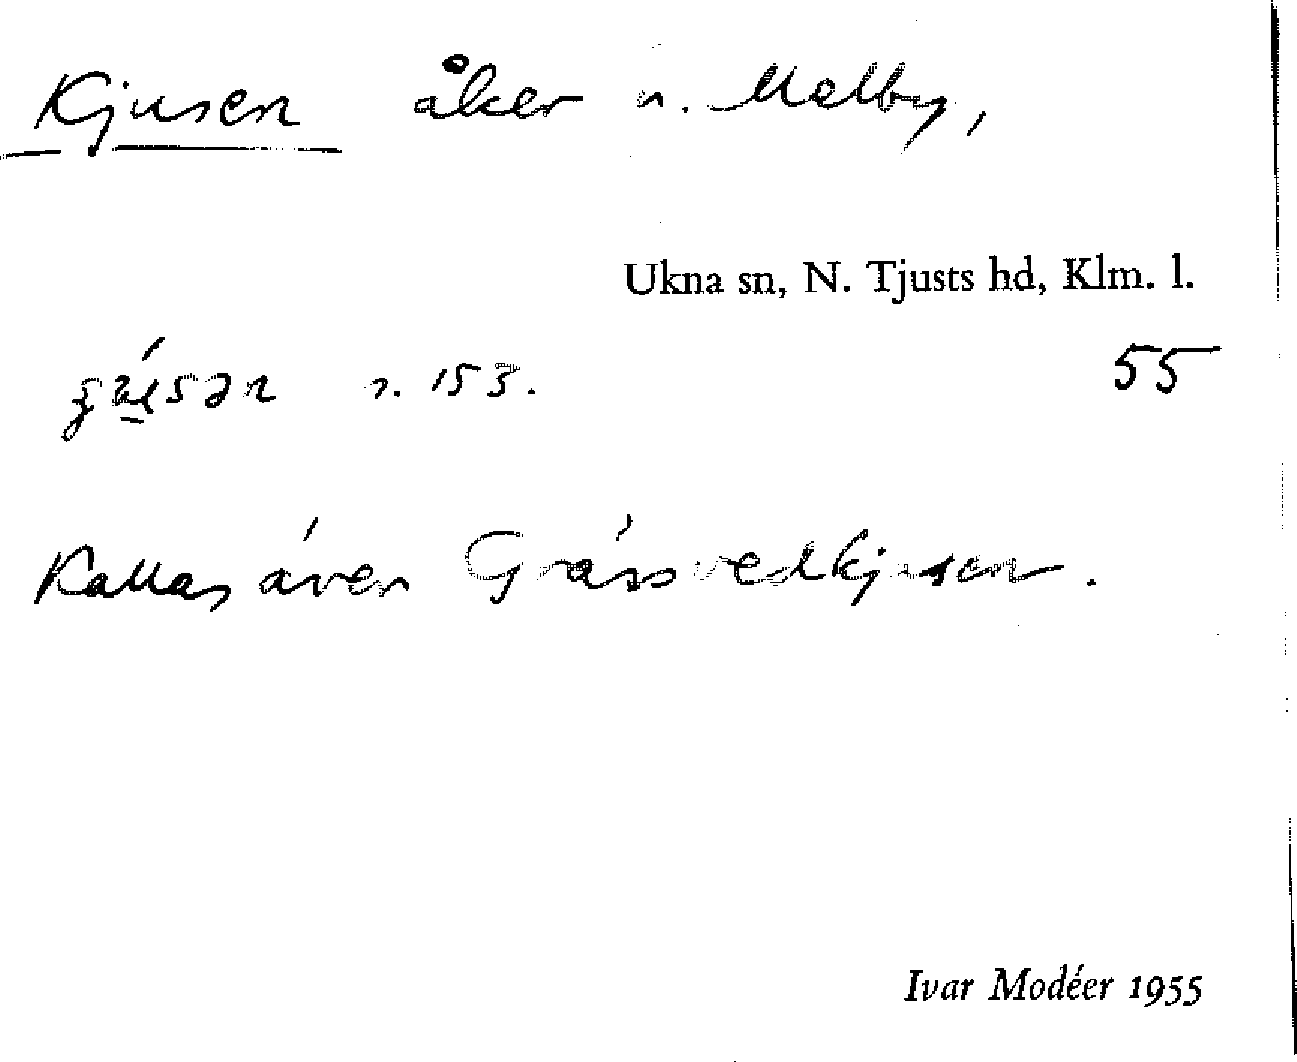 Kjusen åker u. Malby,
Ukna sn, N. Tjusts hd, Klm. l.
153. 55
Kallas även Gråssvedkjusen.
Ivar Modéer 1955